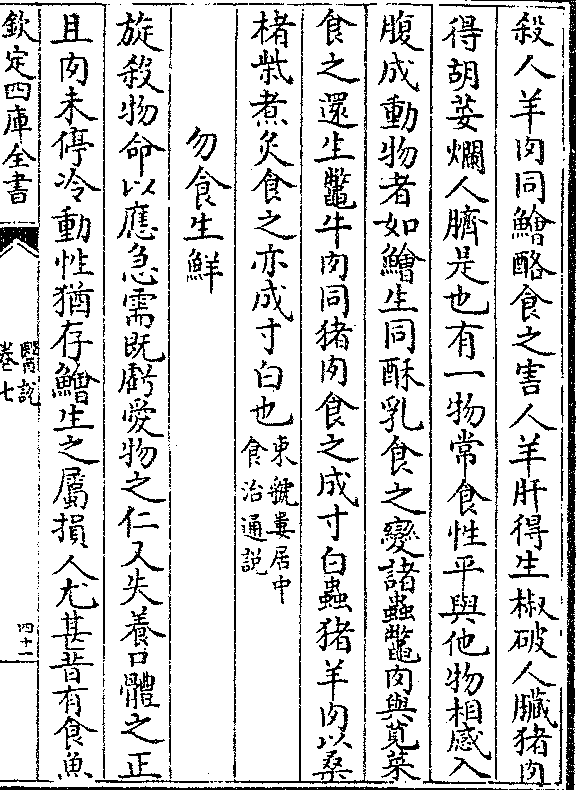 殺人羊肉同鱠酪食之害人羊肝得生椒破人臟猪肉
得胡荽爛人臍是也有一物常食性平與他物相感入
腹成動物者如鱠生同酥乳食之變諸蟲鼈肉與莧菜
食之還生鼈牛肉同猪肉食之成寸白蟲猪羊肉以桑
楮柴煮炙食之亦成寸白也東虢婁居中
食治通說
勿食生鮮
旋殺物命以應急需既虧愛物之仁又失養口體之正
且肉未停冷動性猶存鱠生之屬損人尤甚昔有食魚
欽定四庫全書
醫說
卷七
四十二